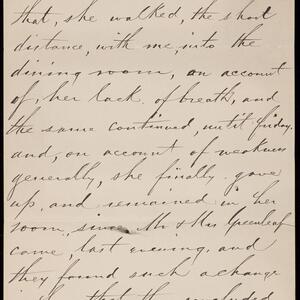 that, she walked, the short
distance, with me, into the
dining room, on account
of, her lack of breath, and
the same continued, until friday.
and, on account of weakness
generally, she finally gave
up, and remained in her
room, since Mr & Mrs Greenleaf
came last evening, and
they found such a change
that the